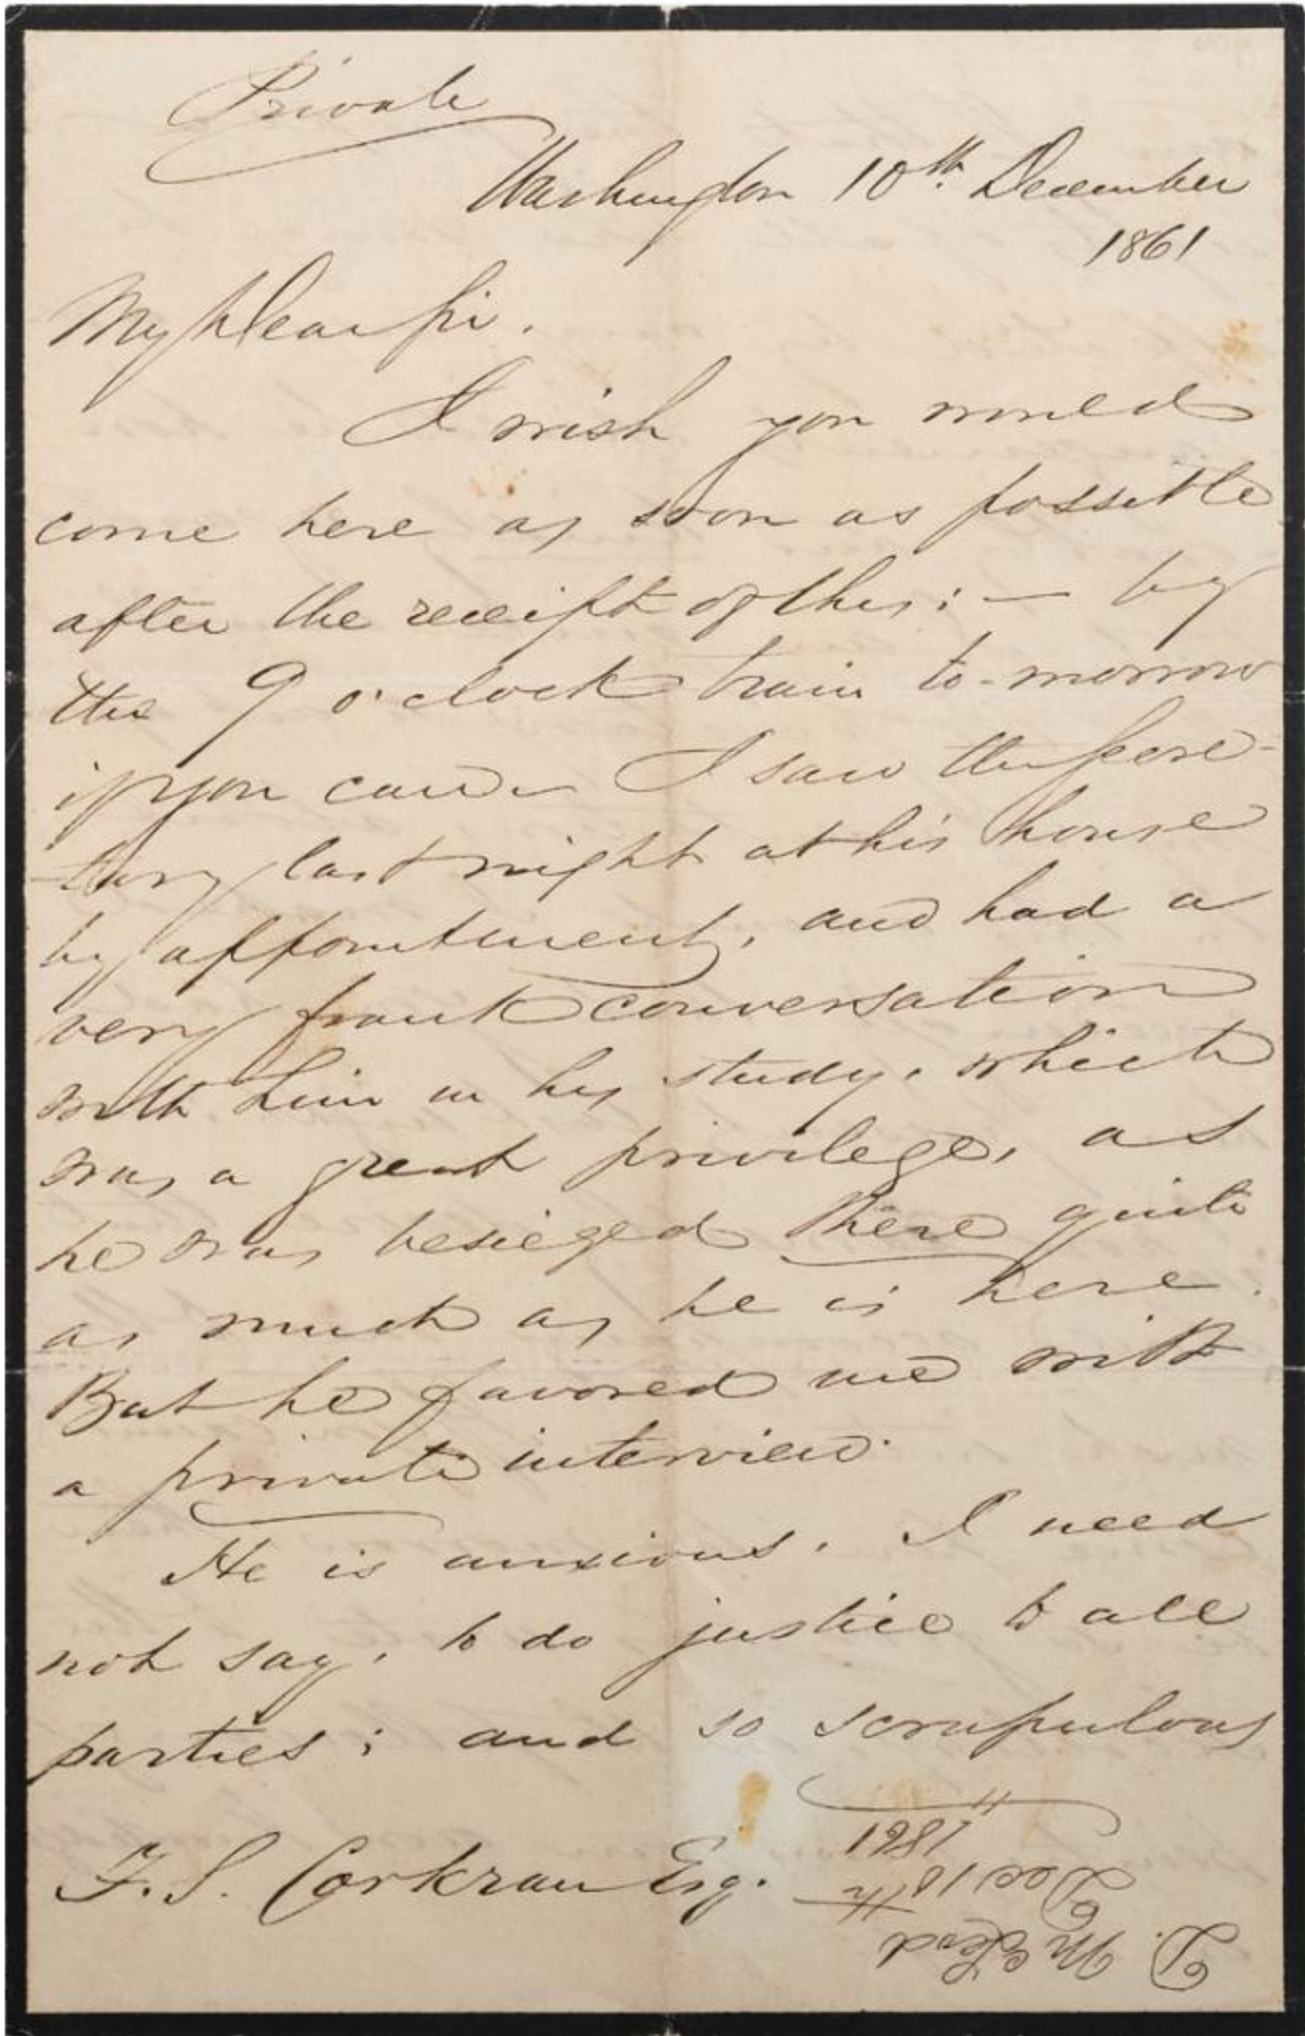 Private
Washington 10th. December
1861
My Dear Sir.
I wish you would
come here as soon as possible
after the receipt of this: — by
the 9 o'clock train to-morrow
if you can. I saw the Secre-
tary last night at his house
by appointment, and had a
very frank conversation
with him in his study, which
was a great privilege, as
he was besieged there quite
as much as he is here.
But he favored me with
a private interview.
He is anxious, I need
not say, to do justice to all
parties; and so scrupulous
F. S. Corkran Esq.
D. McLeod
Dec 10th
1861